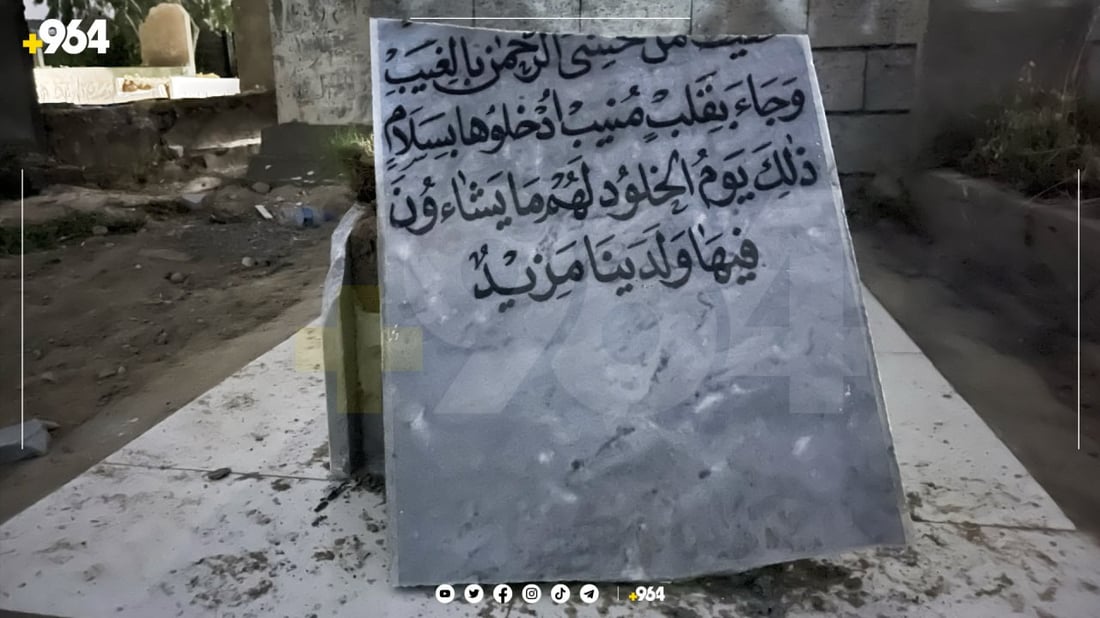 +964
من خشي الرحمن بالغيب
وَجَاءَ بِقَلْبٍ مُنِيبٍ ادْخُلُوهَا بِسَلَامٍ
ذٰلِكَ يَوْمُ الخُلُودِ لَهُمْ مَا يَشَاءُونَ
فِيهَا وَلَدَيْنَا مَزِيدٌ
+964
+964